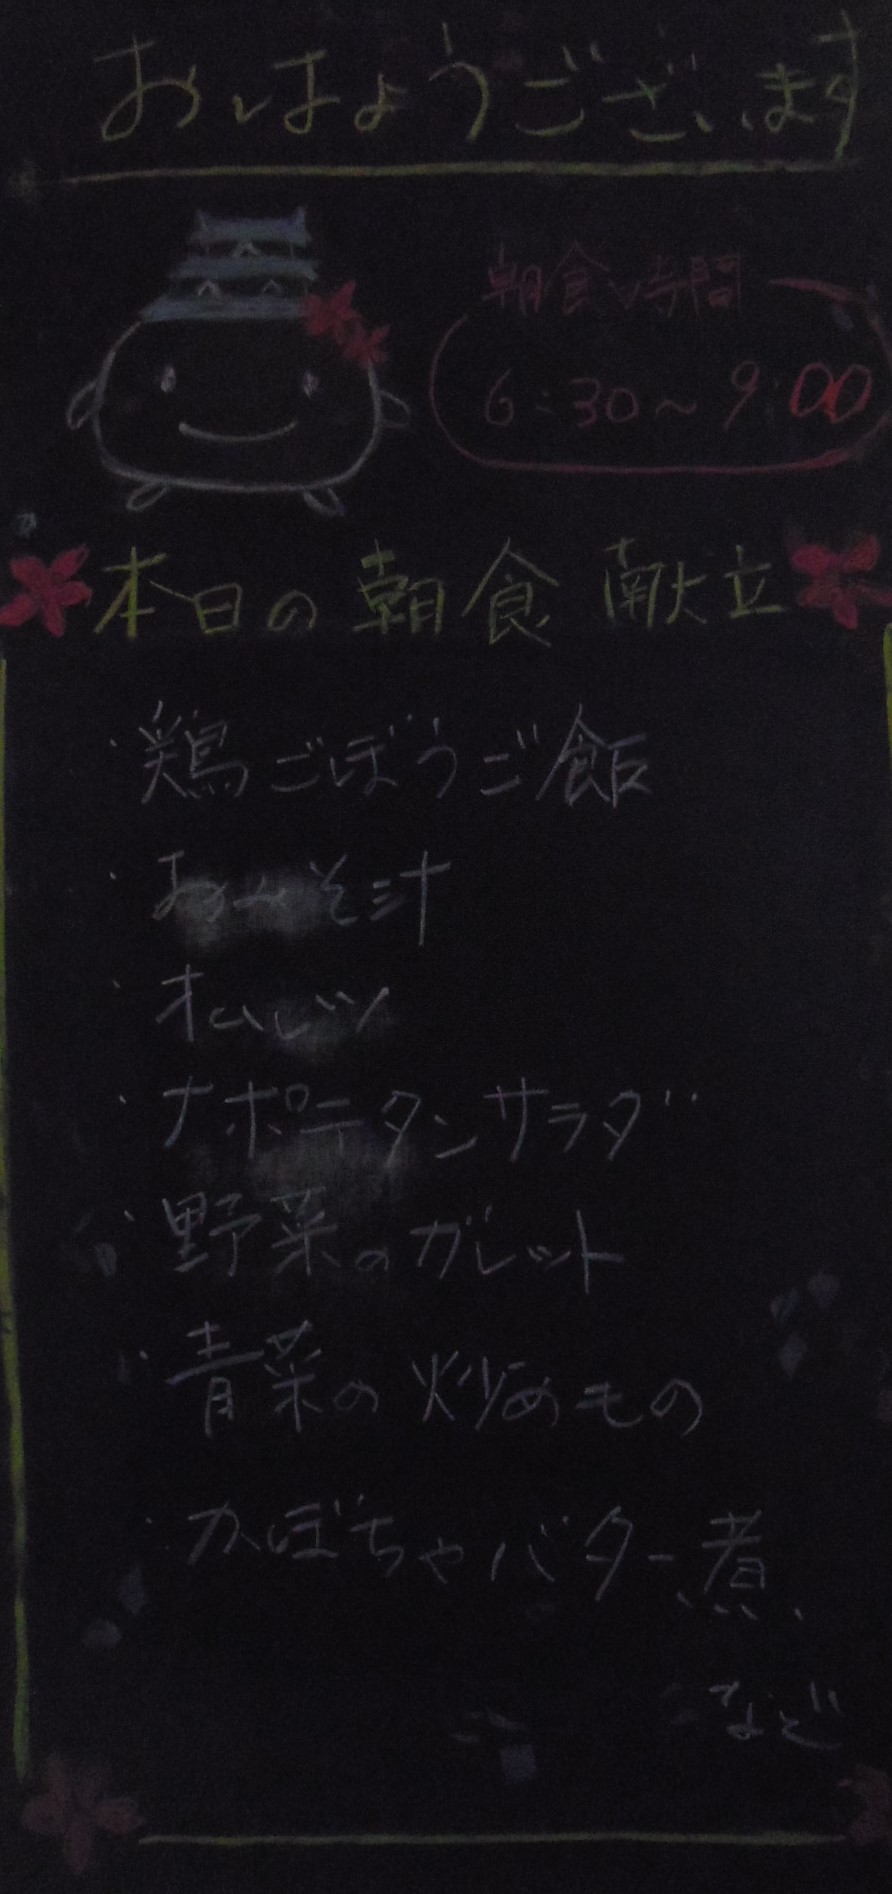 おはようございます
朝食時間
6:30～9:00
本日の朝食 献立
・鶏ごぼうご飯
・おみそ汁
・オムレツ
・ナポリタンサラダ
・野菜のガレット
・青菜の炒めもの
・かぼちゃバター煮
など